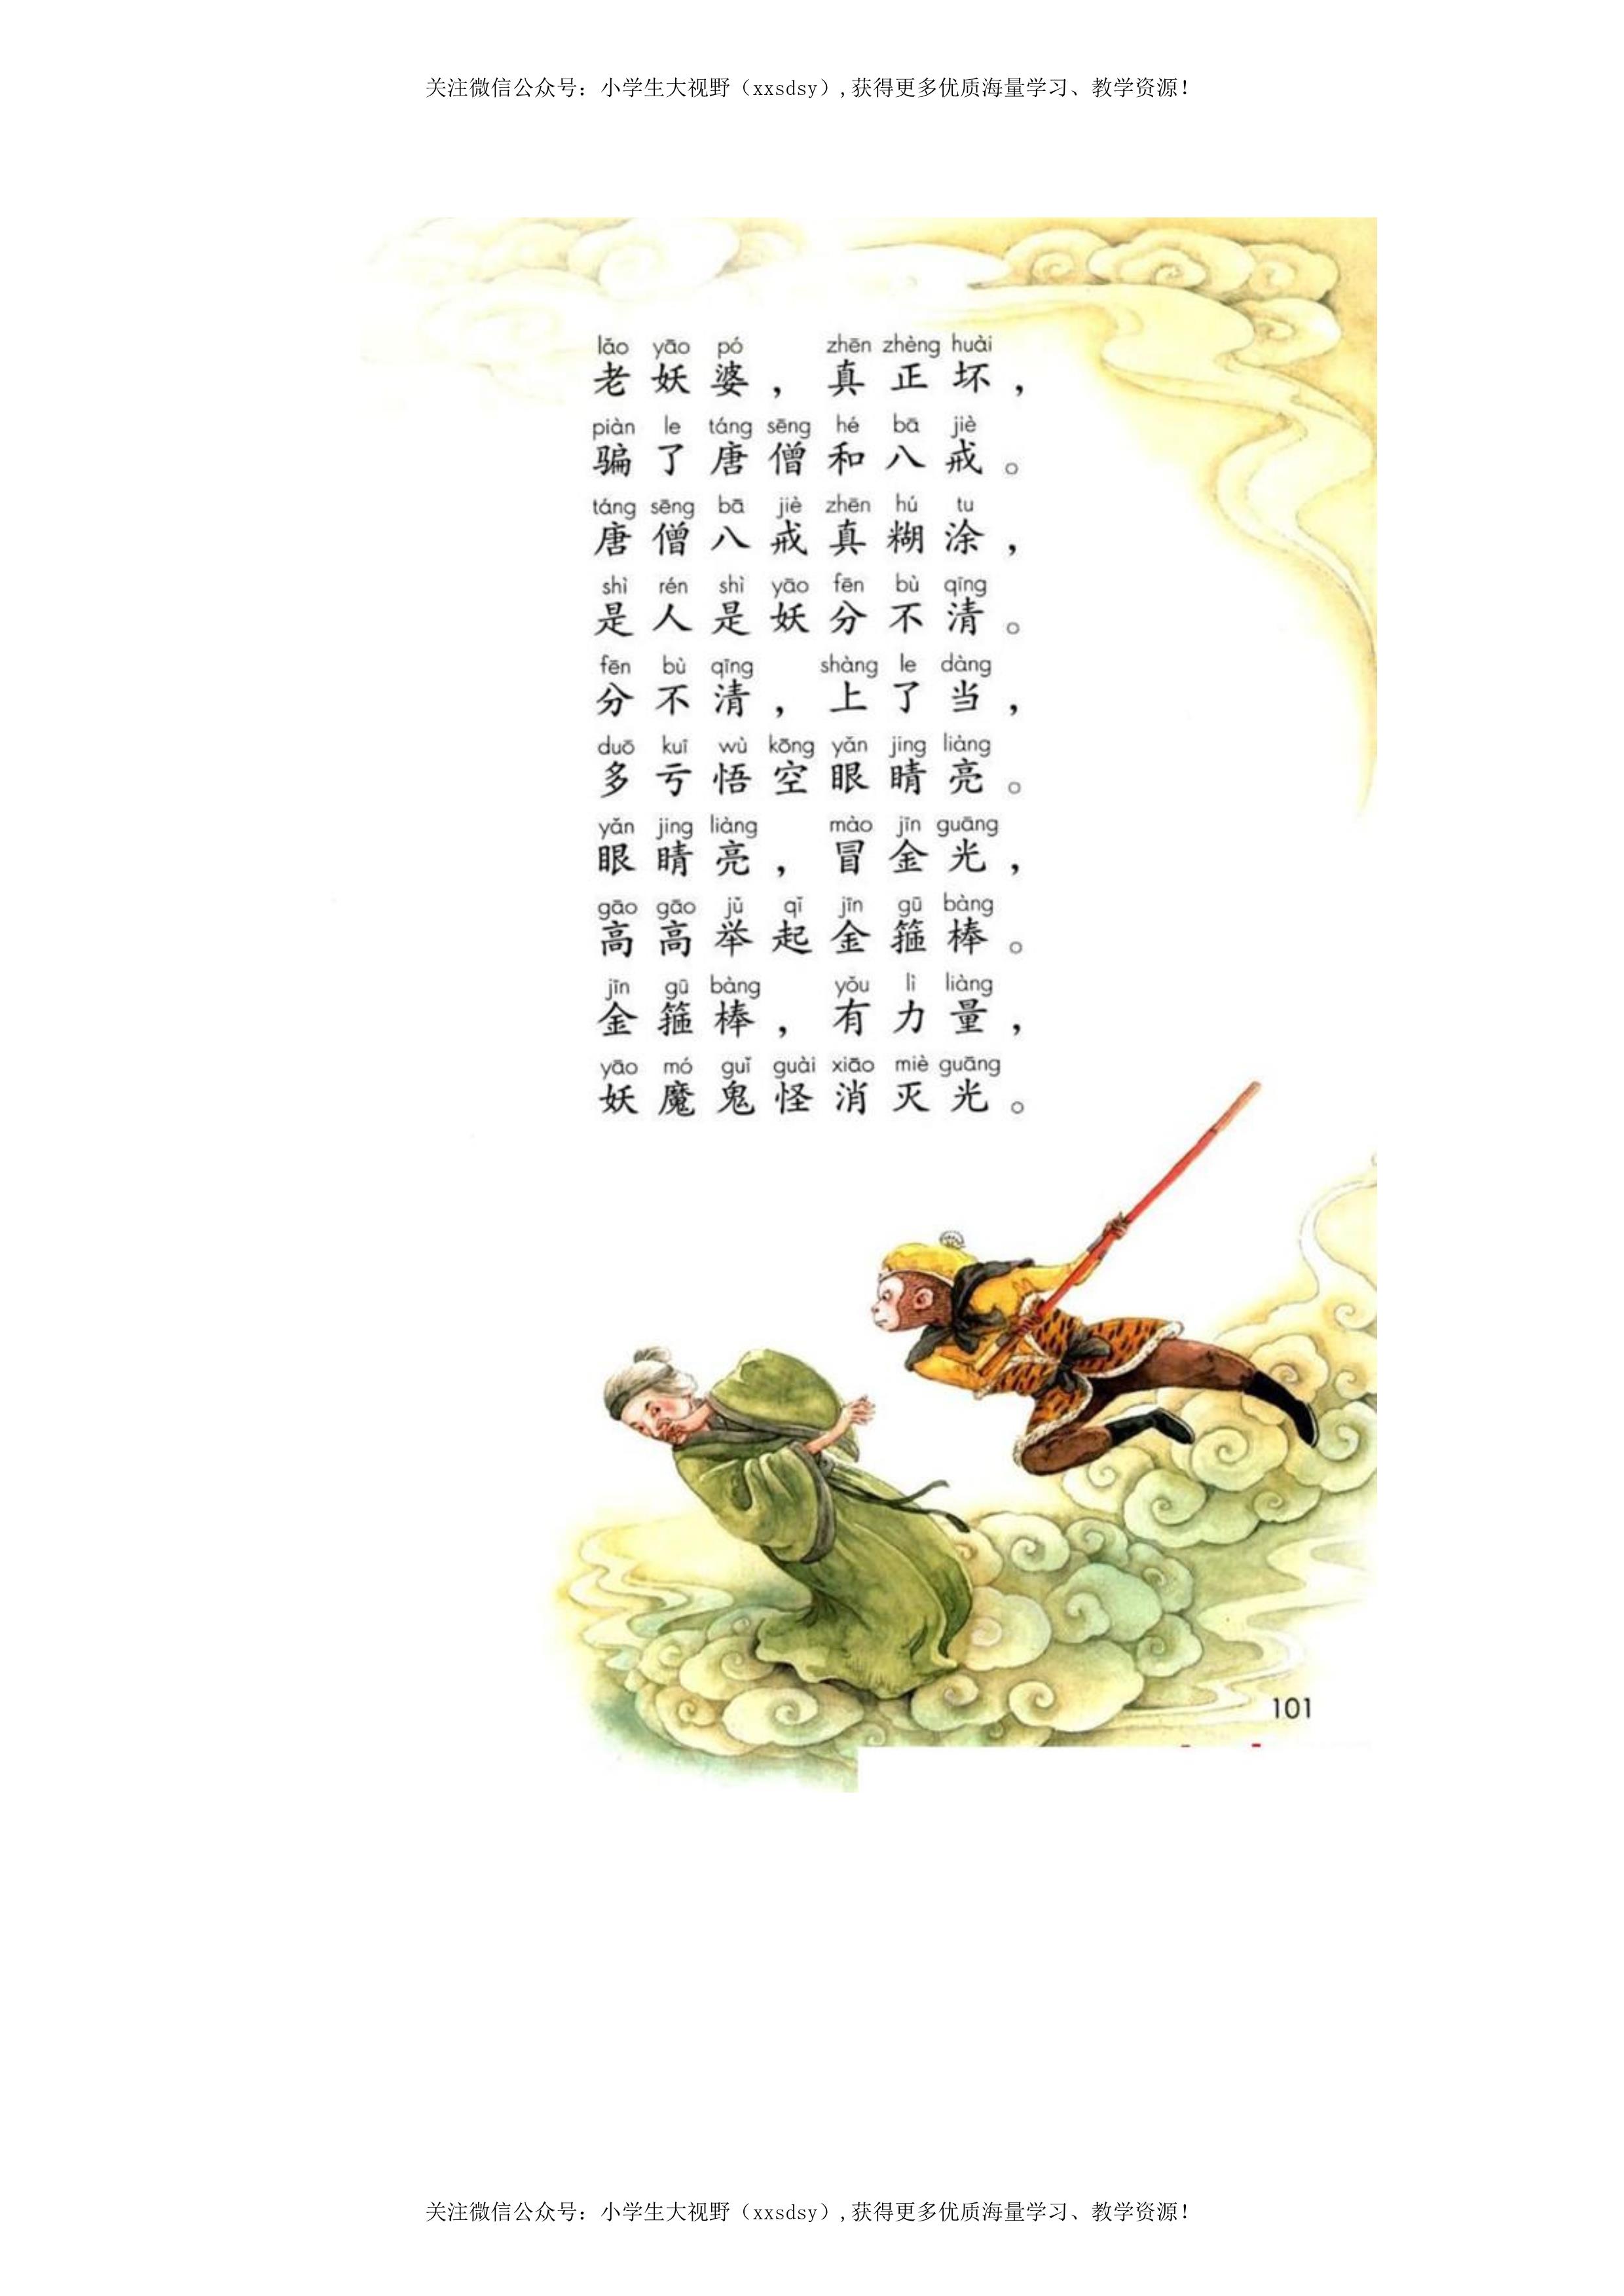 关注微信公众号：小学生大视野（xxsdsy）,获得更多优质海量学习、教学资源！
lǎo yāo pó zhēn zhèng huài
老妖婆，真正坏，
piàn le táng sēng hé bā jiè
骗了唐僧和八戒。
táng sēng bā jiè zhēn hú tu
唐僧八戒真糊涂，
shì rén shì yāo fēn bù qīng
是人是妖分不清。
fēn bù qīng shàng le dàng
分不清，上了当，
duō kuī wù kōng yǎn jing liàng
多亏悟空眼睛亮。
yǎn jing liàng mào jīn guāng
眼睛亮，冒金光，
gāo gāo jǔ qǐ jīn gū bàng
高高举起金箍棒。
jīn gū bàng yǒu lì liàng
金箍棒，有力量，
yāo mó guǐ guài xiāo miè guāng
妖魔鬼怪消灭光。
101
关注微信公众号：小学生大视野（xxsdsy）,获得更多优质海量学习、教学资源！